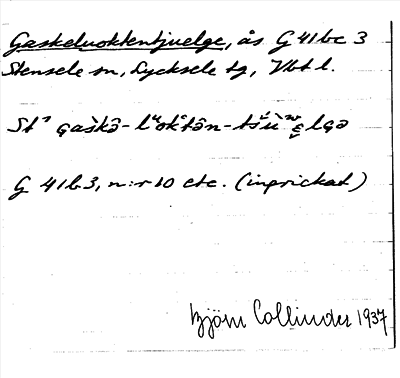 Gaskeluoktentjuelge, ås G 41 bc 3
Stensele sn, Lycksele tg, Vbt l.
St
G 41 b 3, n:r 10 etc. (inprickad)
Björn Collinder 1937